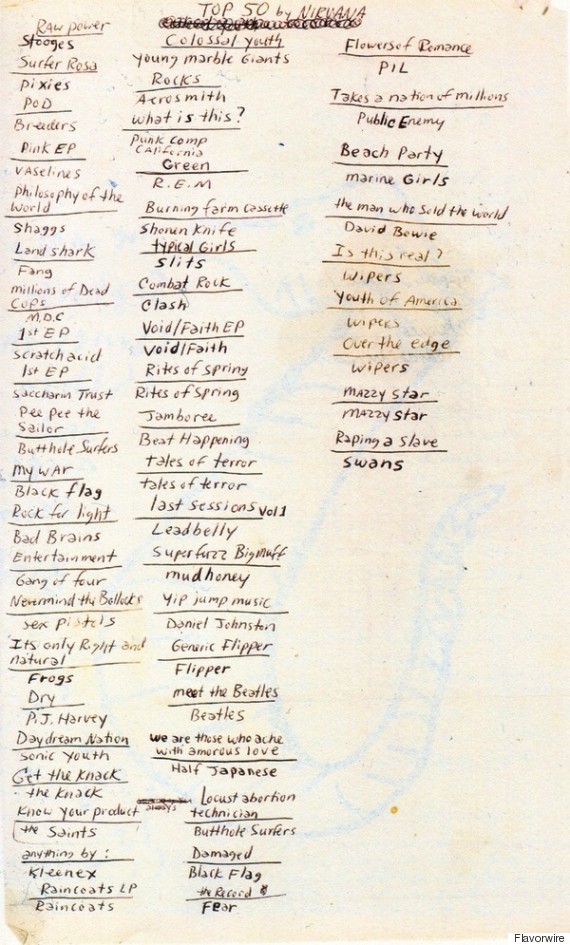 TOP 50 by NIRVANA
Raw power
Stooges
Surfer Rosa
Pixies
POD
Breeders
Pink EP
vaselines
Philosophy of the
World
Shaggs
Land shark
Fang
millions of Dead
Cops
M.D.C
1st EP
scratch acid
1st EP
saccharin Trust
Pee Pee the
Sailor
Butthole Surfers
My wAr
Black flag
Rock for light
Bad Brains
Entertainment
Gang of four
Nevermind the Bollocks
sex pistols
Its only Right and
natural
Frogs
Dry
P.J. Harvey
Daydream Nation
sonic youth
Get the knack
the knack
know your product
the Saints
anything by :
Kleenex
Raincoats LP
Raincoats
Colossal youth
young marble Giants
Rocks
Aerosmith
what is this?
Punk Comp
California
Green
R.E.M
Burning farm cassette
Shonen Knife
typical Girls
slits
Combat Rock
Clash
Void/Faith EP
Void/Faith
Rites of spring
Rites of Spring
Jamboree
Beat Happening
tales of terror
tales of terror
last sessions vol 1
Leadbelly
Superfuzz Bigmuff
mudhoney
Yip jump music
Daniel Johnston
Generic Flipper
Flipper
meet the Beatles
Beatles
we are those who ache
with amorous love
Half Japanese
Locust abortion
technician
Butthole Surfers
Damaged
Black Flag
the Record
Fear
Flowers of Romance
PIL
Takes a nation of millions
Public Enemy
Beach Party
marine Girls
the man who sold the world
David Bowie
Is this real?
Wipers
Youth of America
wipers
Over the edge
wipers
mazzy star
mazzy star
Raping a slave
swans
Flavorwire